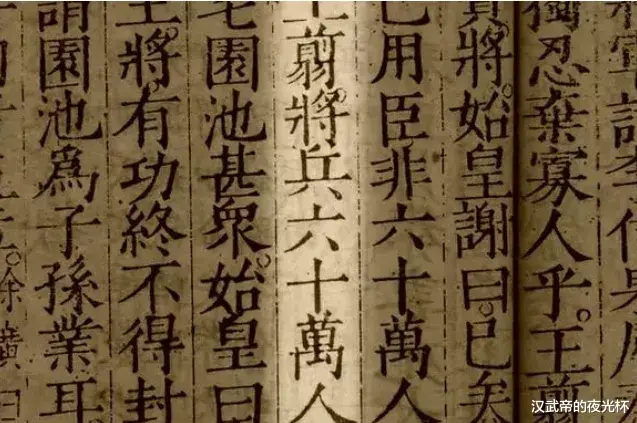 軍計李信果
獨忍棄寡人乎。王翦
賢將。始皇謝曰。已矣
已用臣非六十萬人
王翦將兵六十萬人
宅園池甚衆。始皇曰
王將。有功終不得封
請園池爲子孫業耳
徐廣曰
汉武帝的夜光杯